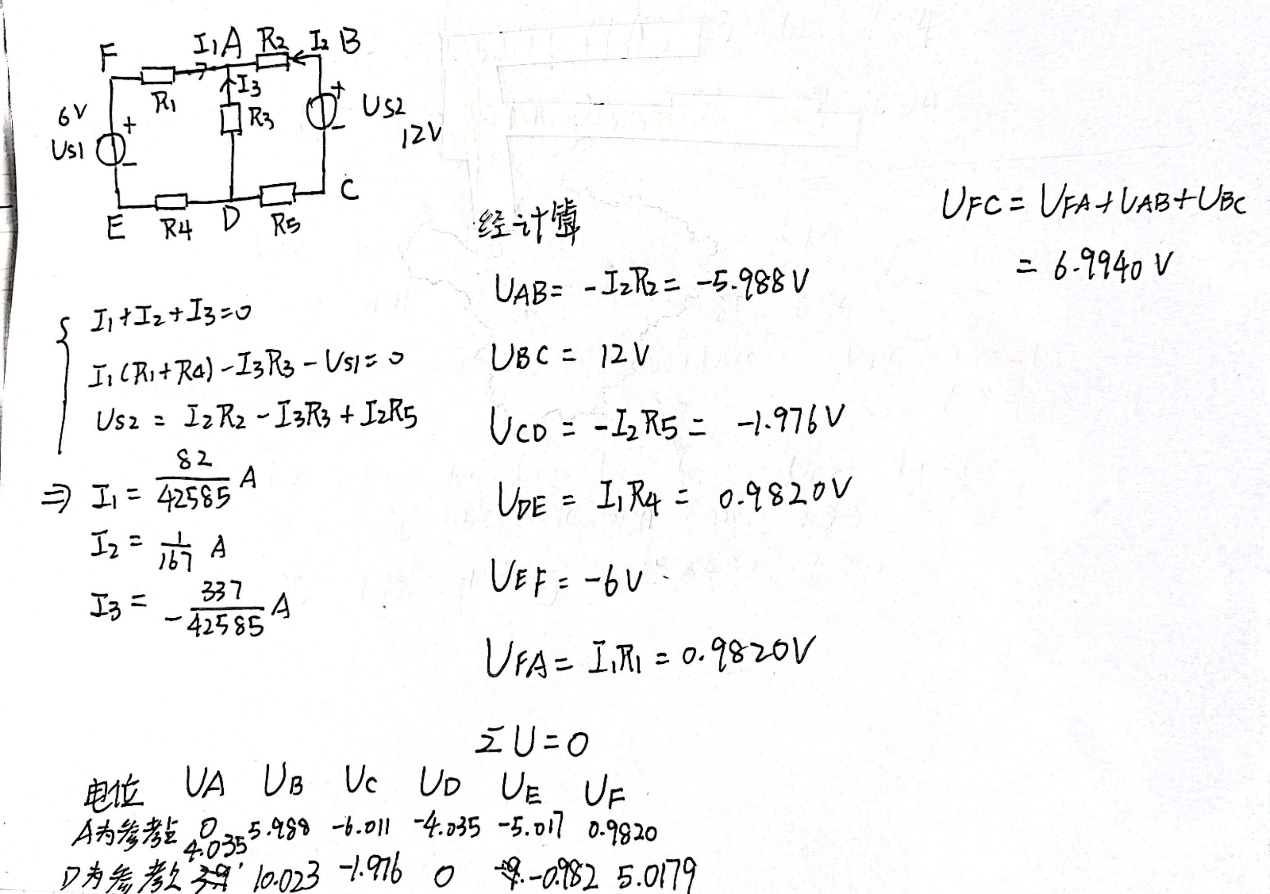 F I₁ A R₂ I₂ B
R₁ I₃
6V + R₃ + US2
US1 - - 12V
E R4 D R5 C
{ I₁+I₂+I₃=0
I₁(R₁+R4)-I₃R₃-US1=0
US2 = I₂R₂-I₃R₃+I₂R5
⇒ I₁= 82/42585 A
I₂= 1/167 A
I₃= -337/42585 A
经计算
UAB= -I₂R₂= -5.988V
UBC = 12V
UCD = -I₂R5= -1.976V
UDE = I₁R4= 0.9820V
UEF=-6V.
UFA= I₁R₁=0.9820V
ΣU=0
UFC= UFA+UAB+UBC
= 6.9940 V
电位 UA UB UC UD UE UF
A为参考点 0 5.988 -6.011 -4.035 -5.017 0.9820
D为参考点 4.035 10.023 -1.976 0 -0.982 5.0179